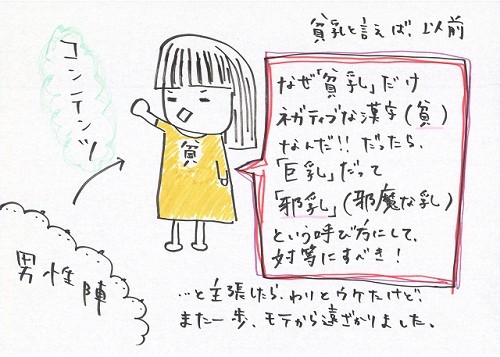 貧乳と言えば、以前
コンテンツ
なぜ「貧乳」だけ
ネガティブな漢字(貧)
なんだ!!だったら、
「巨乳」だって
「邪乳」(邪魔な乳)
という呼び方にして、
対等にすべき!
貧
男性陣
…と主張したら、わりとウケたけど、
また一歩、モテから遠ざかりました。